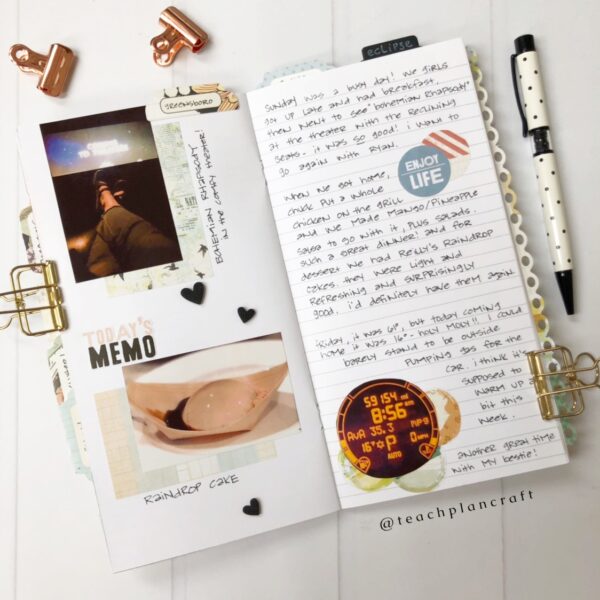 eclipse
GREENSBORO
BOHEMIAN RHAPSODY
IN THE COMFY THEATER!
TODAY'S
MEMO
RAINDROP CAKE
SUNDAY WAS A BUSY DAY! WE GIRLS
GOT UP LATE AND HAD BREAKFAST,
THEN WENT TO SEE "BOHEMIAN RHAPSODY"
AT THE THEATER WITH THE RECLINING
SEATS. IT WAS SO GOOD! I WANT TO
GO AGAIN WITH RYAN.
ENJOY
LIFE
WHEN WE GOT HOME,
CHUCK PUT A WHOLE
CHICKEN ON THE GRILL
AND WE MADE MANGO/PINEAPPLE
SALSA TO GO WITH IT, PLUS SALADS.
SUCH A GREAT DINNER! AND FOR
DESSERT WE HAD REILLY'S RAINDROP
CAKES. THEY WERE LIGHT AND
REFRESHING AND SURPRISINGLY
GOOD. I'D DEFINITELY HAVE THEM AGAIN
FRIDAY, IT WAS 61°, BUT TODAY COMING
HOME IT WAS 16°- HOLY MOLY!! I COULD
BARELY STAND TO BE OUTSIDE
PUMPING GAS FOR THE
CAR. I THINK IT'S
SUPPOSED TO
WARM UP A
BIT THIS
WEEK.
59154
8:56
AVA 35.3
16° P 0 MPH
AUTO
ANOTHER GREAT TIME
WITH MY BESTIE!
@teachplancraft